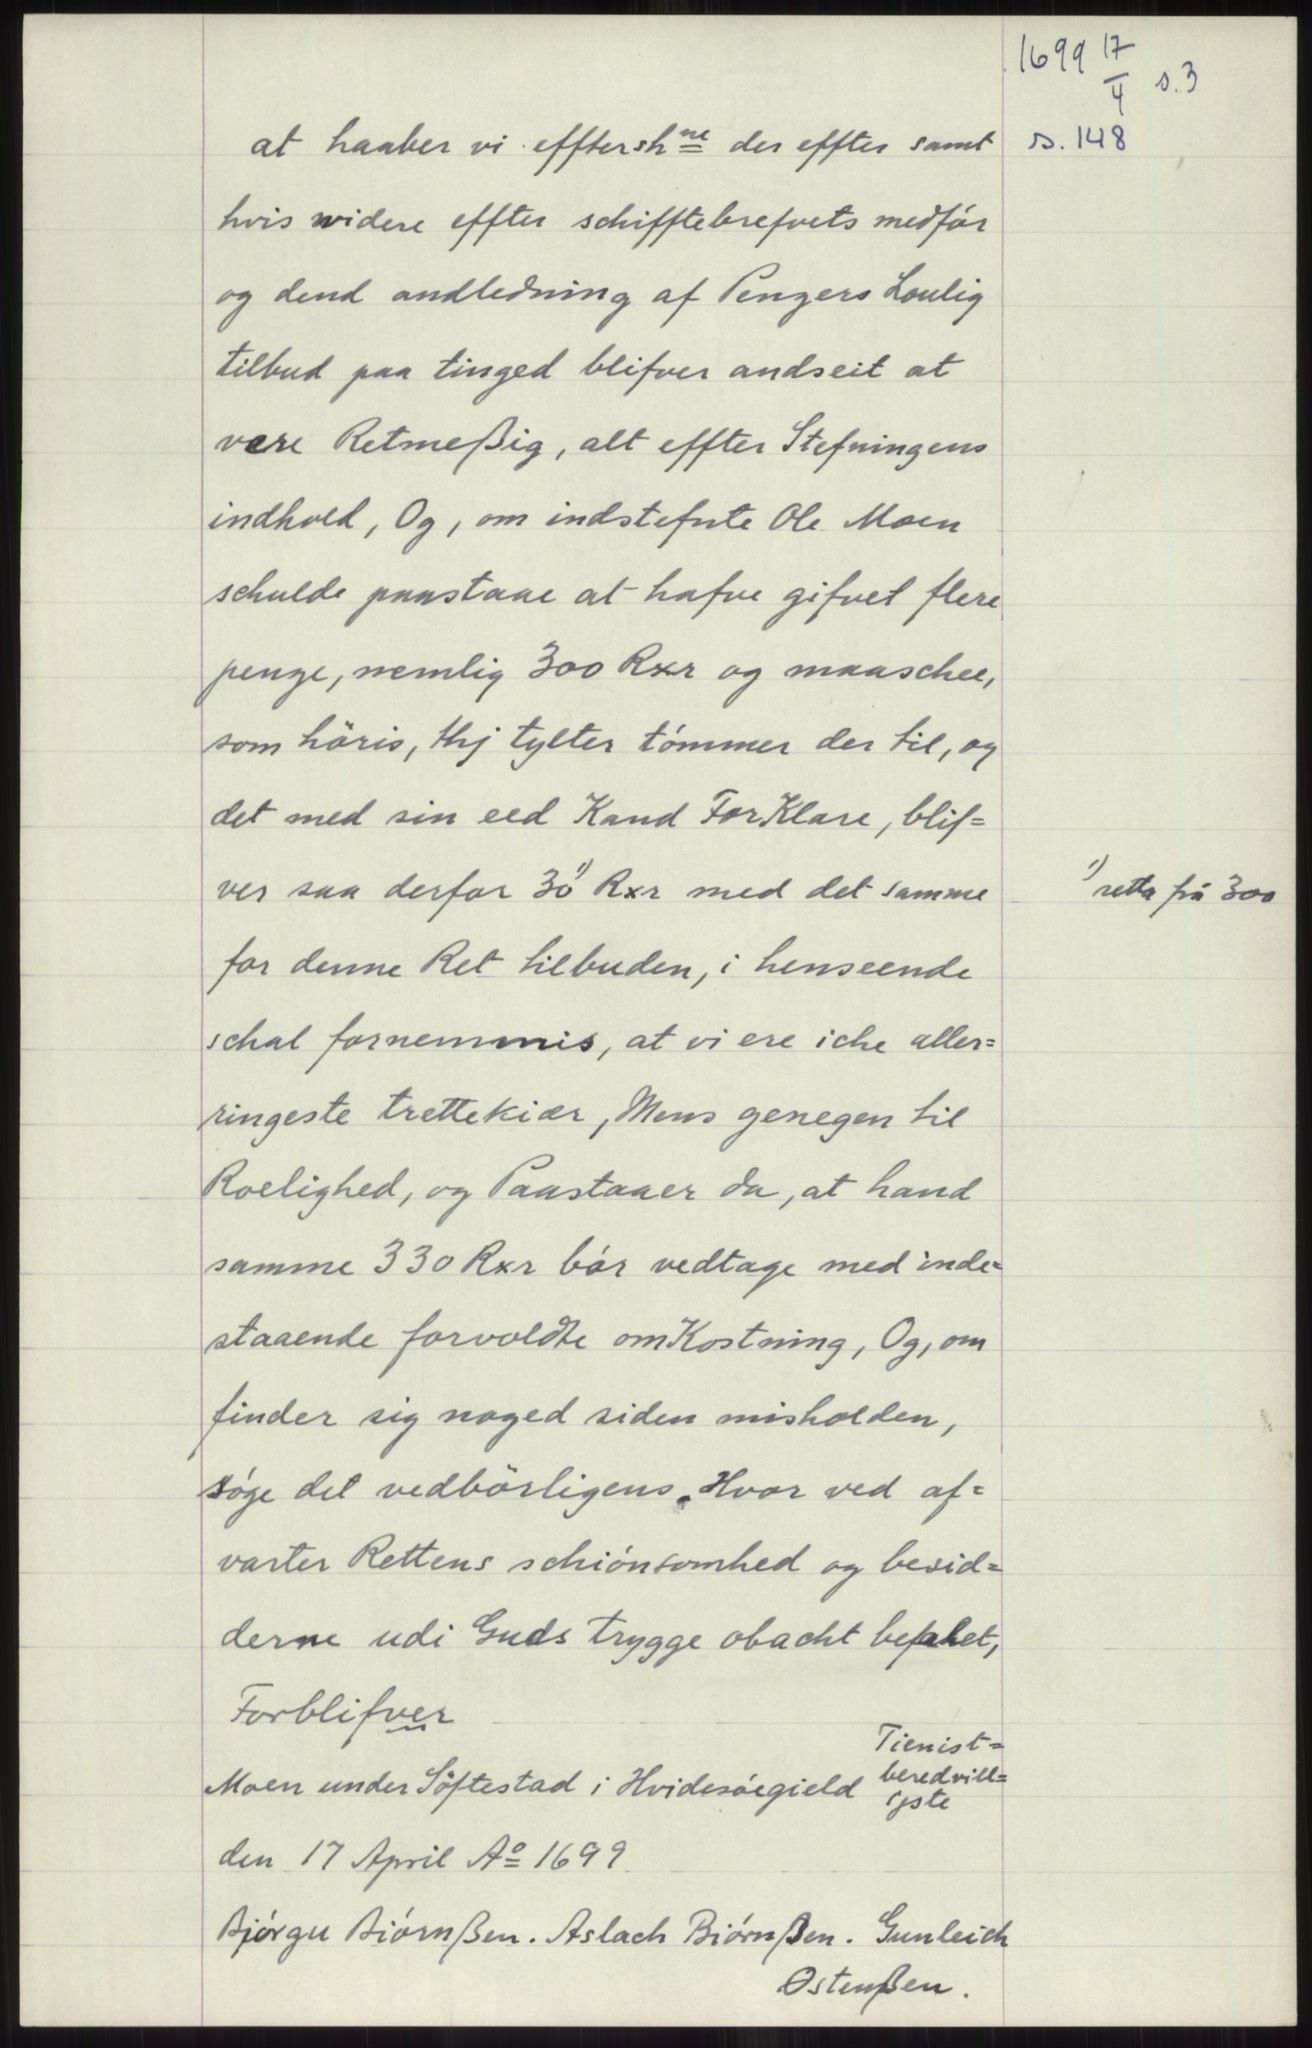 1699 17/4 s. 3
s. 148
at haaber vi efftersh<sup>ne</sup> der effter samt
hvis widere effter schifftebrefvets medfór
og dend andledning af Pengers Loulig
tilbud paa tinged blifver andseit at
vere Retmeßig, alt effter Stefningens
indhold, Og, om indstefnte Ole Moen
schulde paastaae at hafve gifvet flere
penge, nemlig 300 Rxr og maaschee,
som höris, thj tylter tómmer der til, og
det med sin eed Kand ForKlare, blif=
ver saa derfor 30<sup>1)</sup> Rxr med det samme
1) retta frå 300
for denne Ret tilbuden, i henseende
schal fornemmis, at vi ere iche aller=
ringeste trettekiær, Mens genegen til
Roelighed, og Paastaaer da, at hand
samme 330 Rxr bór vedtage med inde=
staaende forvoldte omKostning, Og, om
finder sig noged siden misholden,
søge det vedbörligens. Hvor ved af=
varter Rettens schiónsomhed og besid=
derne udi Guds trygge obacht befalet,
Forblifver
Tienist=
beredvill=
igste
Moen under Söftestad i Hvidesóegield
den 17 April Aº 1699
Bjórgu Biórnßen. Aslach Biórnßen. Gunleich
Ostenßen.